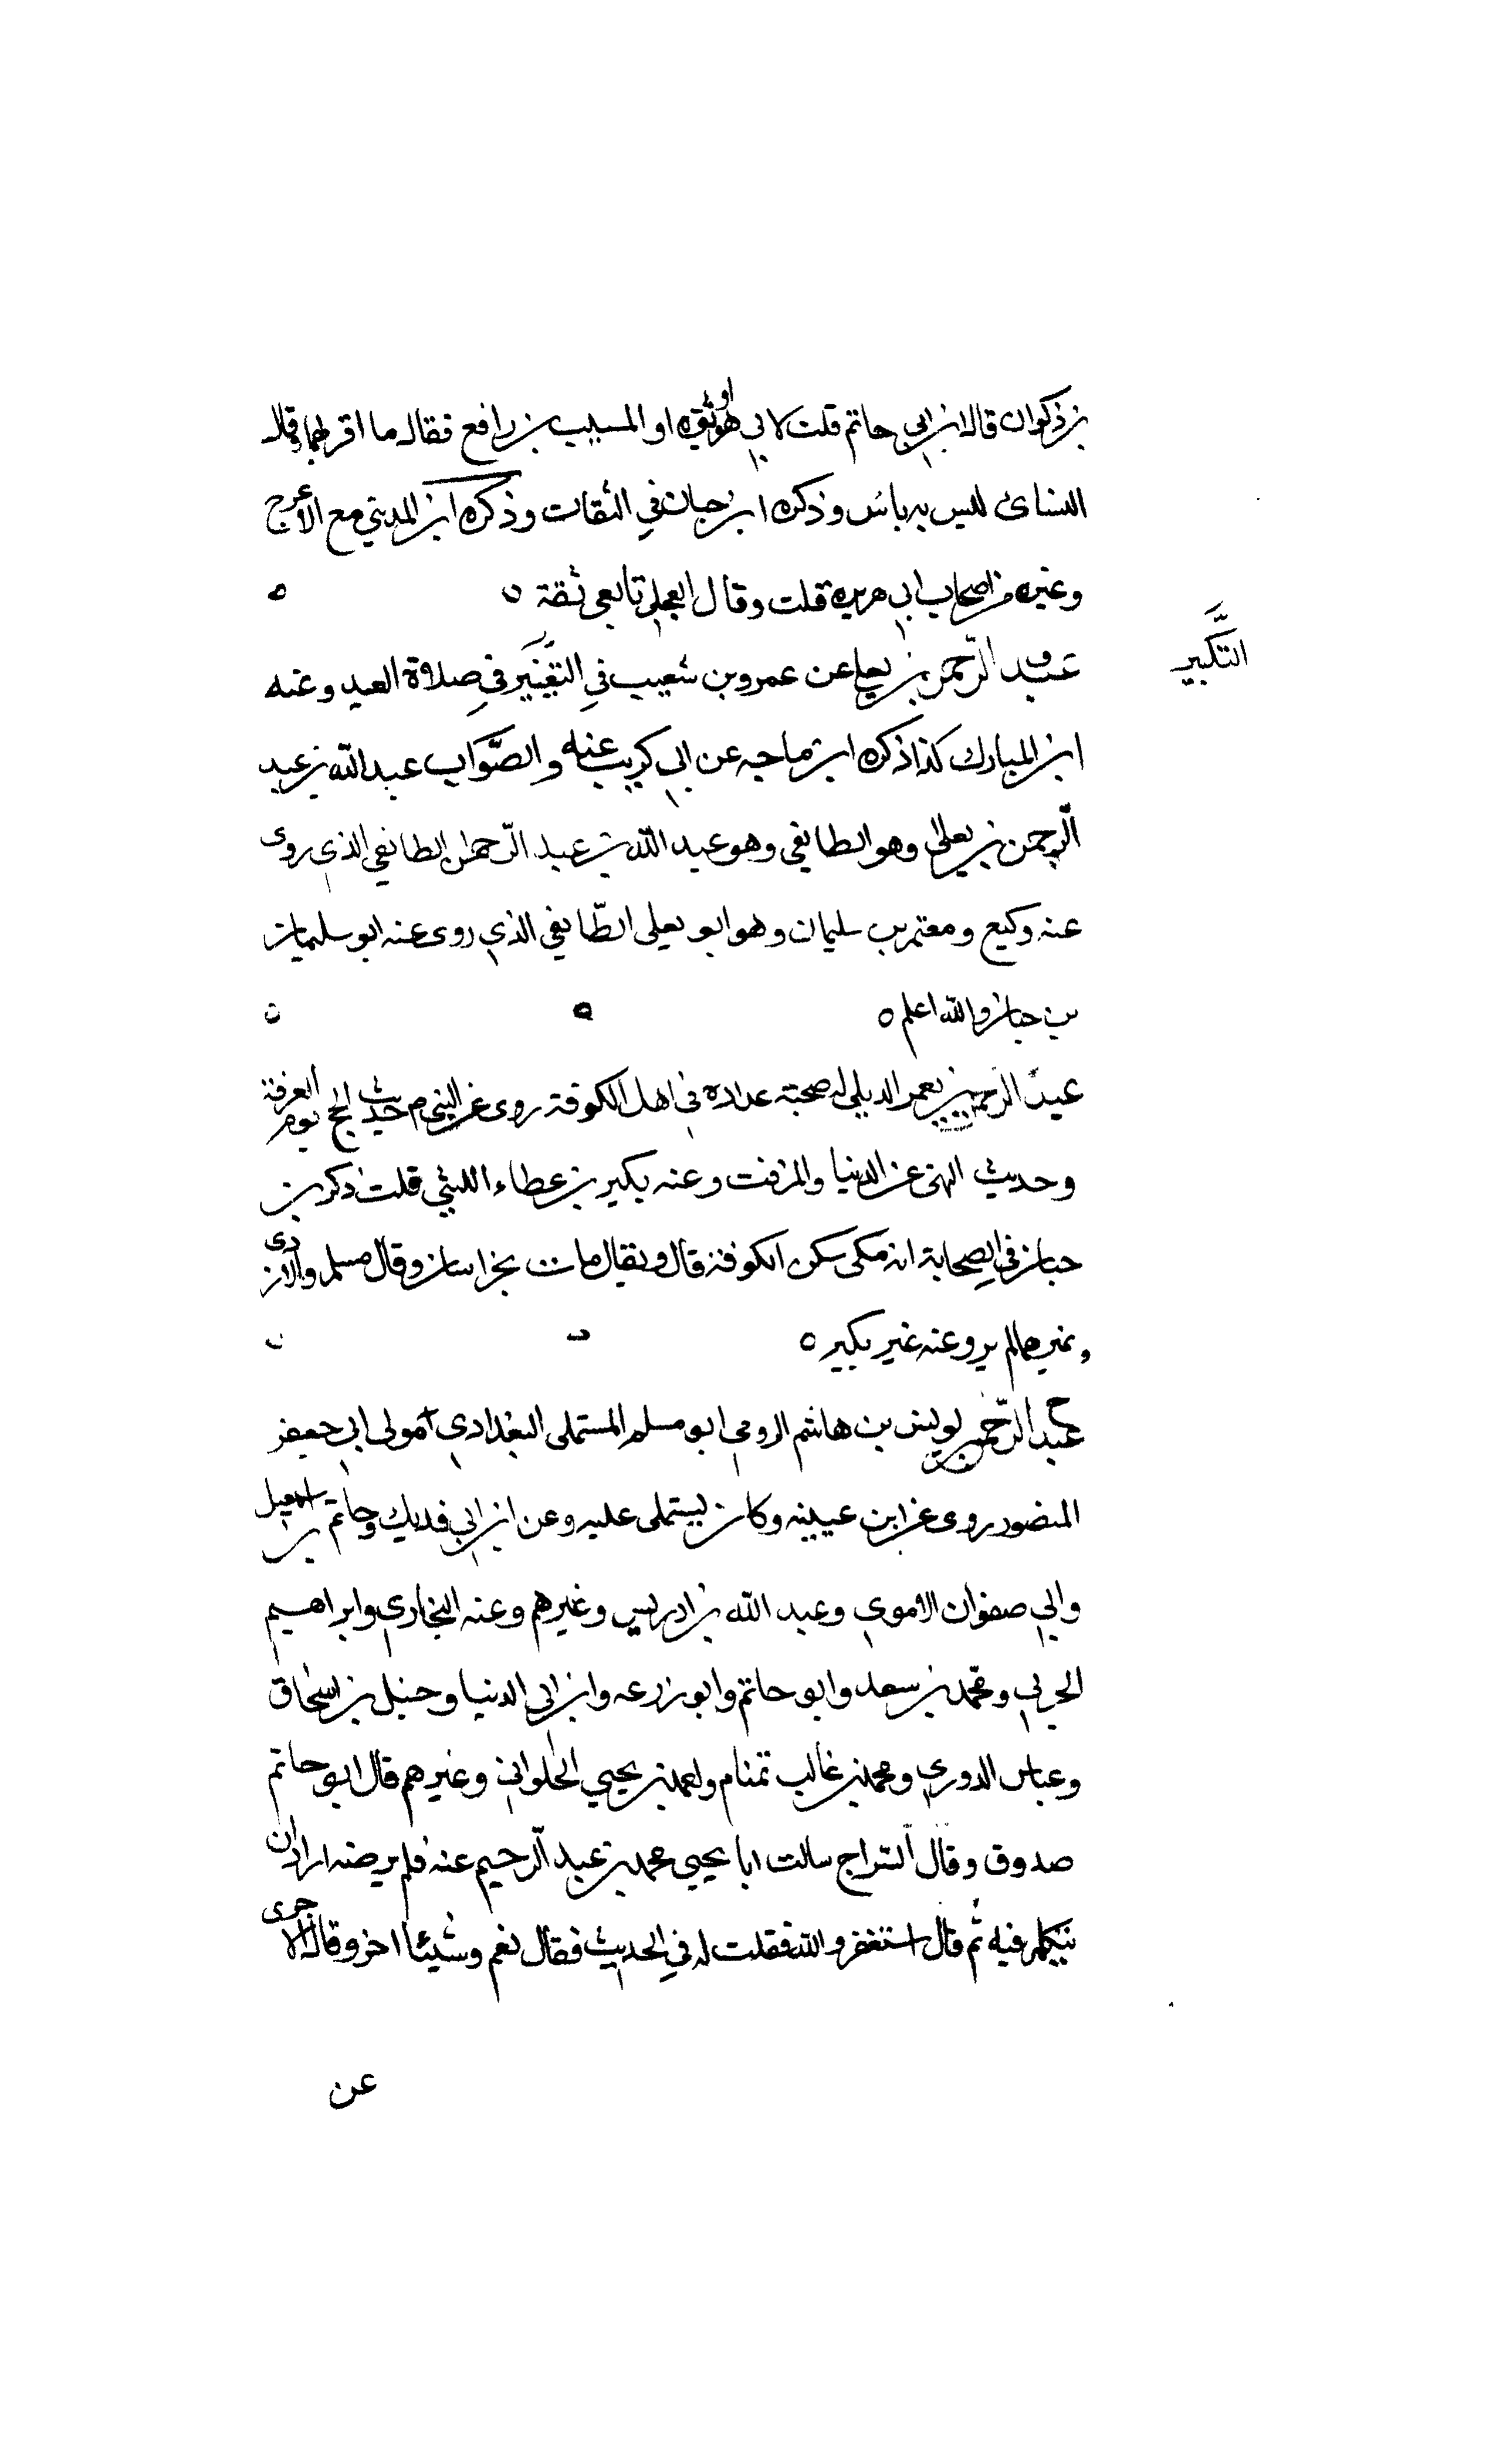 بن ذكوان قال ابن ابي حاتم قلت لابي هو اوثق او المسيب بن رافع فقال ما اقربهما وقال
النسائ ليس به باس وذكره ابن حبان في الثقات وذكره ابن المديني مع الاعرج
وغيره من اصحاب ابي هريرة قلت وقال العجلي تابعي ثقة ٥
عبد الرحمن بن يعلى عن عمرو بن شعيب في في صلاة العيد وعنه
التكبير
ابن المبارك كذا ذكره ابن ماجه عن ابي كريب عنه والصواب عبد الله بن عبد
الرحمن بن يعلى وهو الطايفي وهو عبد الله بن عبد الرحمن الطايفي الذي روى
عنه وكيع ومعتمر بن سليمان وهو ابو يعلى الطايفي الذي روى عنه ابو سليمان
بن حبان والله اعلم ٥
عبد الرحمن بن يعمر الديلي له صحبة عداده في اهل الكوفة روى عن النبي م حديث الحج يوم العرفة
وحديث النهى عن الدنيا والمزفت وعنه بكير بن عطاء الليثي قلت ذكر بن
حبان في الصحابة انه مكى سكن الكوفة قال ويقال مات بخراسان وقال مسلم والازدى
وغيرهما لم يرو عنه غير بكير ٥
عبد الرحمن بن يونس بن هاشم الرومي ابو مسلم المستملى البغدادي مولى ابي جعفر
المنصور روى عن ابن عيينه وكان يستملى عليه وعن ابن ابي فديك وحاتم بن اسمعيل
وابي صفوان الاموي وعبد الله بن ادريس وغيرهم وعنه البخاري وابراهيم
الحربي ومحمد بن سعد وابو حاتم وابو زرعه وابن ابي الدنيا وحنبل بن اسحاق
وعباس الدوري ومحمد بن غالب تمتام واحمد بن يحيي الحلواني وغيرهم قال ابو حاتم
صدوق وقال السراج سالت ابا يحيى محمد بن عبد الرحيم عنه فلم يرضه اراد ان
يتكلم فيه ثم قال استغفر الله فقلت له في الحديث فقال نعم وشيئا اخر وقال الاجرى
عن